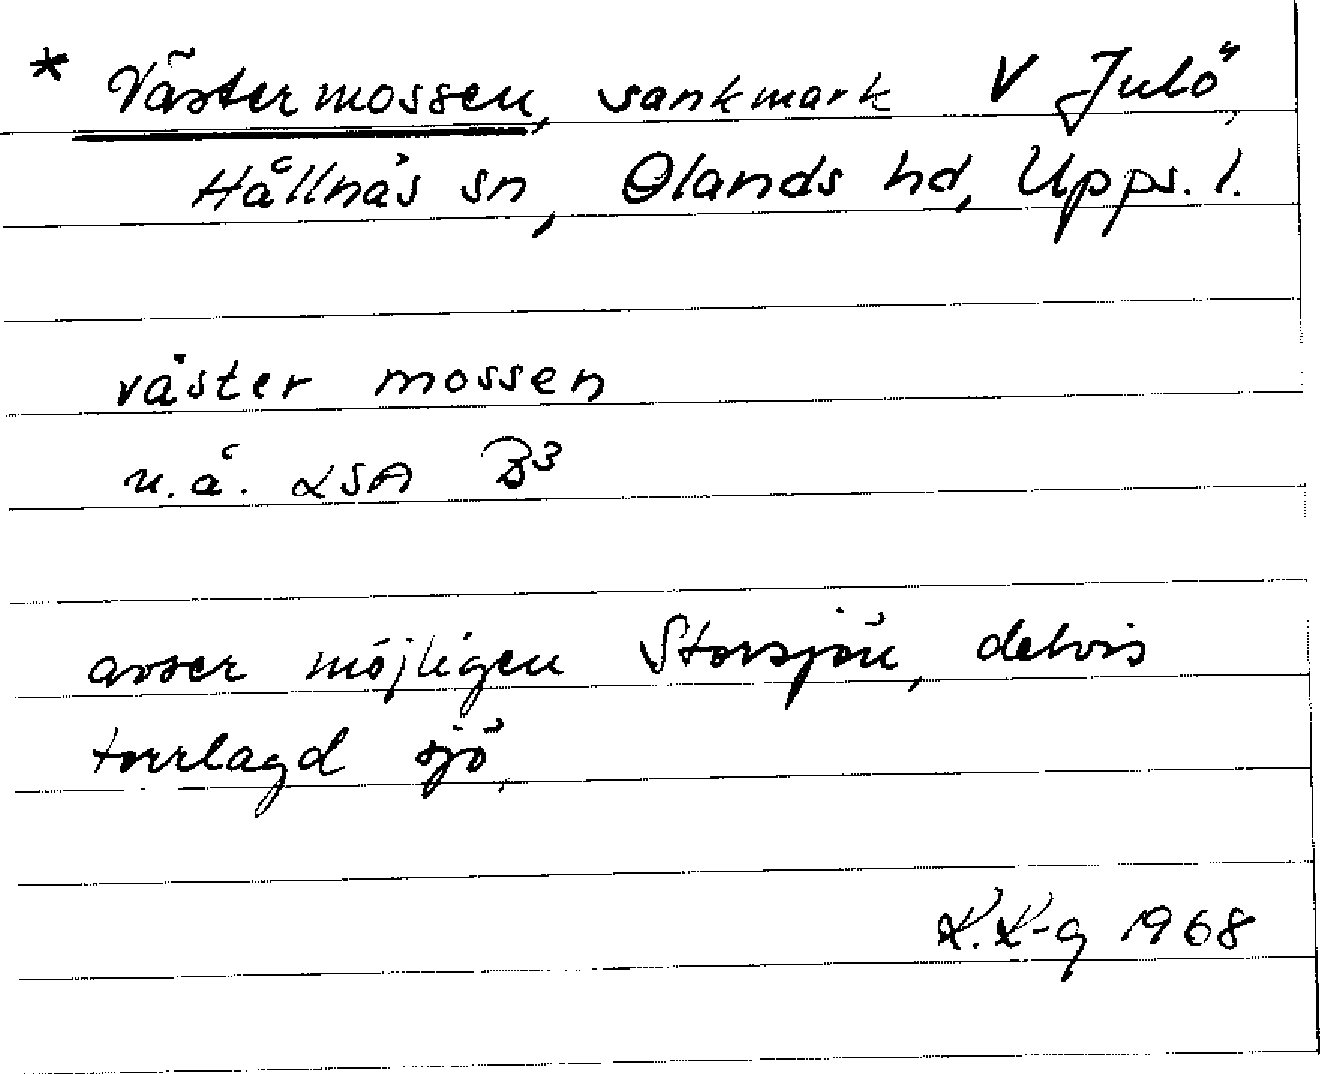 * Västermossen, sankmark V Julö,
Hållnäs sn, Olands hd, Upps. l.
väster mossen
u.å. LSA B3
avser möjligen Storsjön, delvis
torrlagd sjö.
K.K-g 1968